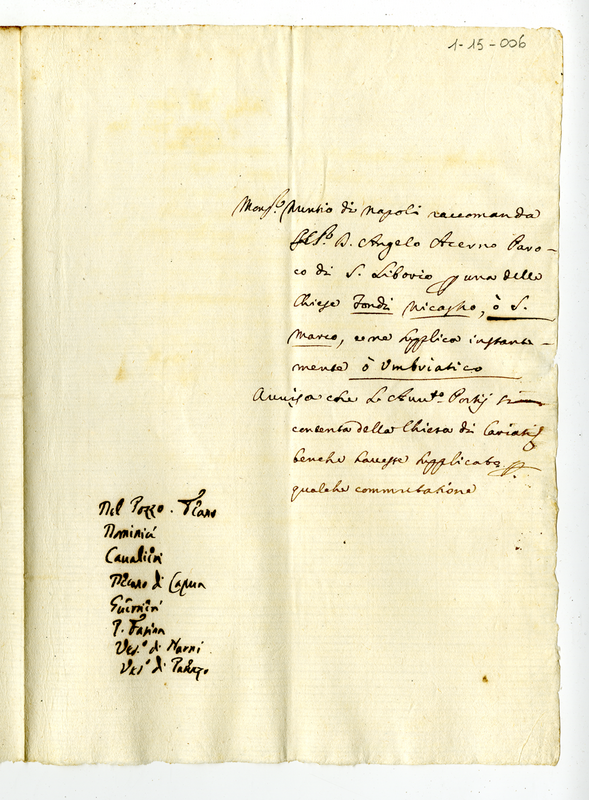 1-15-006
Mons.r Nuntio di Napoli raccomanda
D. Angelo Acerno Paro-
co di S. Liborio una delle
Chiese Fondi Nicastro, ò S.
Marco, e ne supplica instante-
mente ò Umbriatico
Avvisa che
contenta della Chiesa di Cariati
benche havesse supplicato
qualche commutatione
Del Pozzo.
Cavalieri
di Capua
Guerrieri
Vesc.o di Narni
Vesc.o di